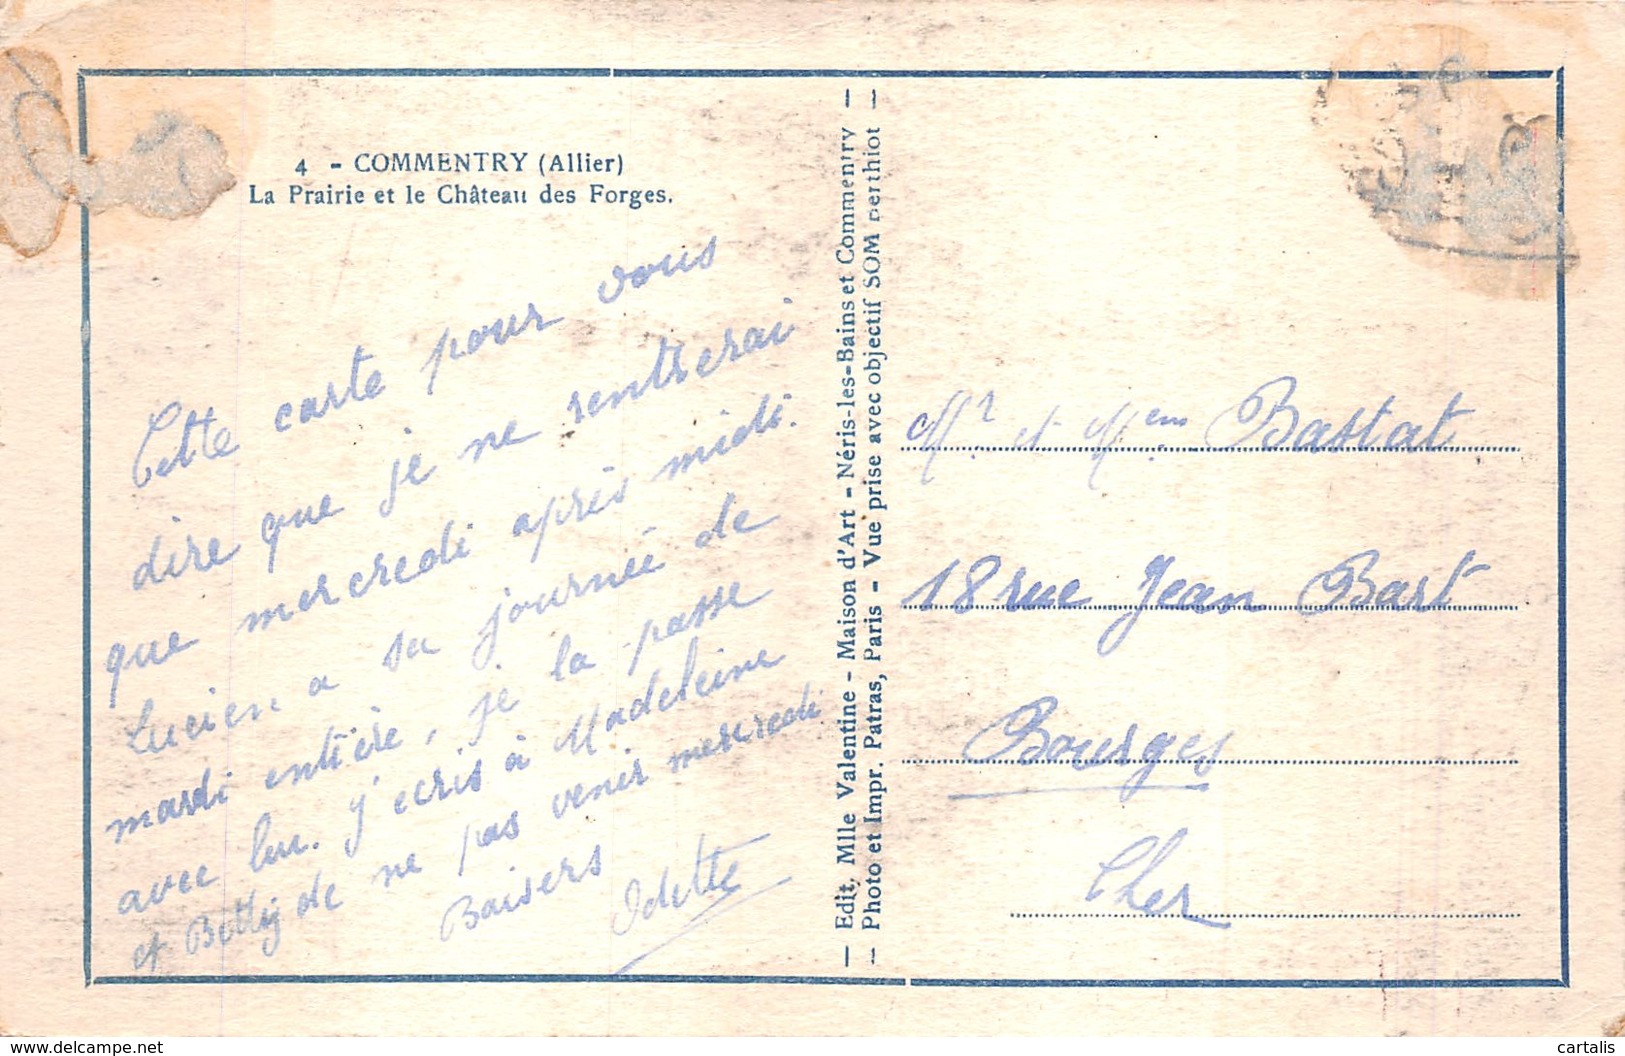 4 - COMMENTRY (Allier)
La Prairie et le Château des Forges.
Cette carte pour vous
dire que je ne rentrerai
que mercredi après midi.
Lucien a sa journée de
mardi entière, je la passe
avec lui. j'ecris à Madeleine
et Betty de ne pas venir mercredi
Baisers
Odette
— Edit, Mlle Valentine - Maison d'Art - Néris-les-Bains et Commentry —
-- Photo et Impr. Patras, Paris - Vue prise avec objectif SOM Berthiot --
Mr et Mem Bastat
18 rue Jean Bart
Bourges
Cher
www.delcampe.net
cartalis